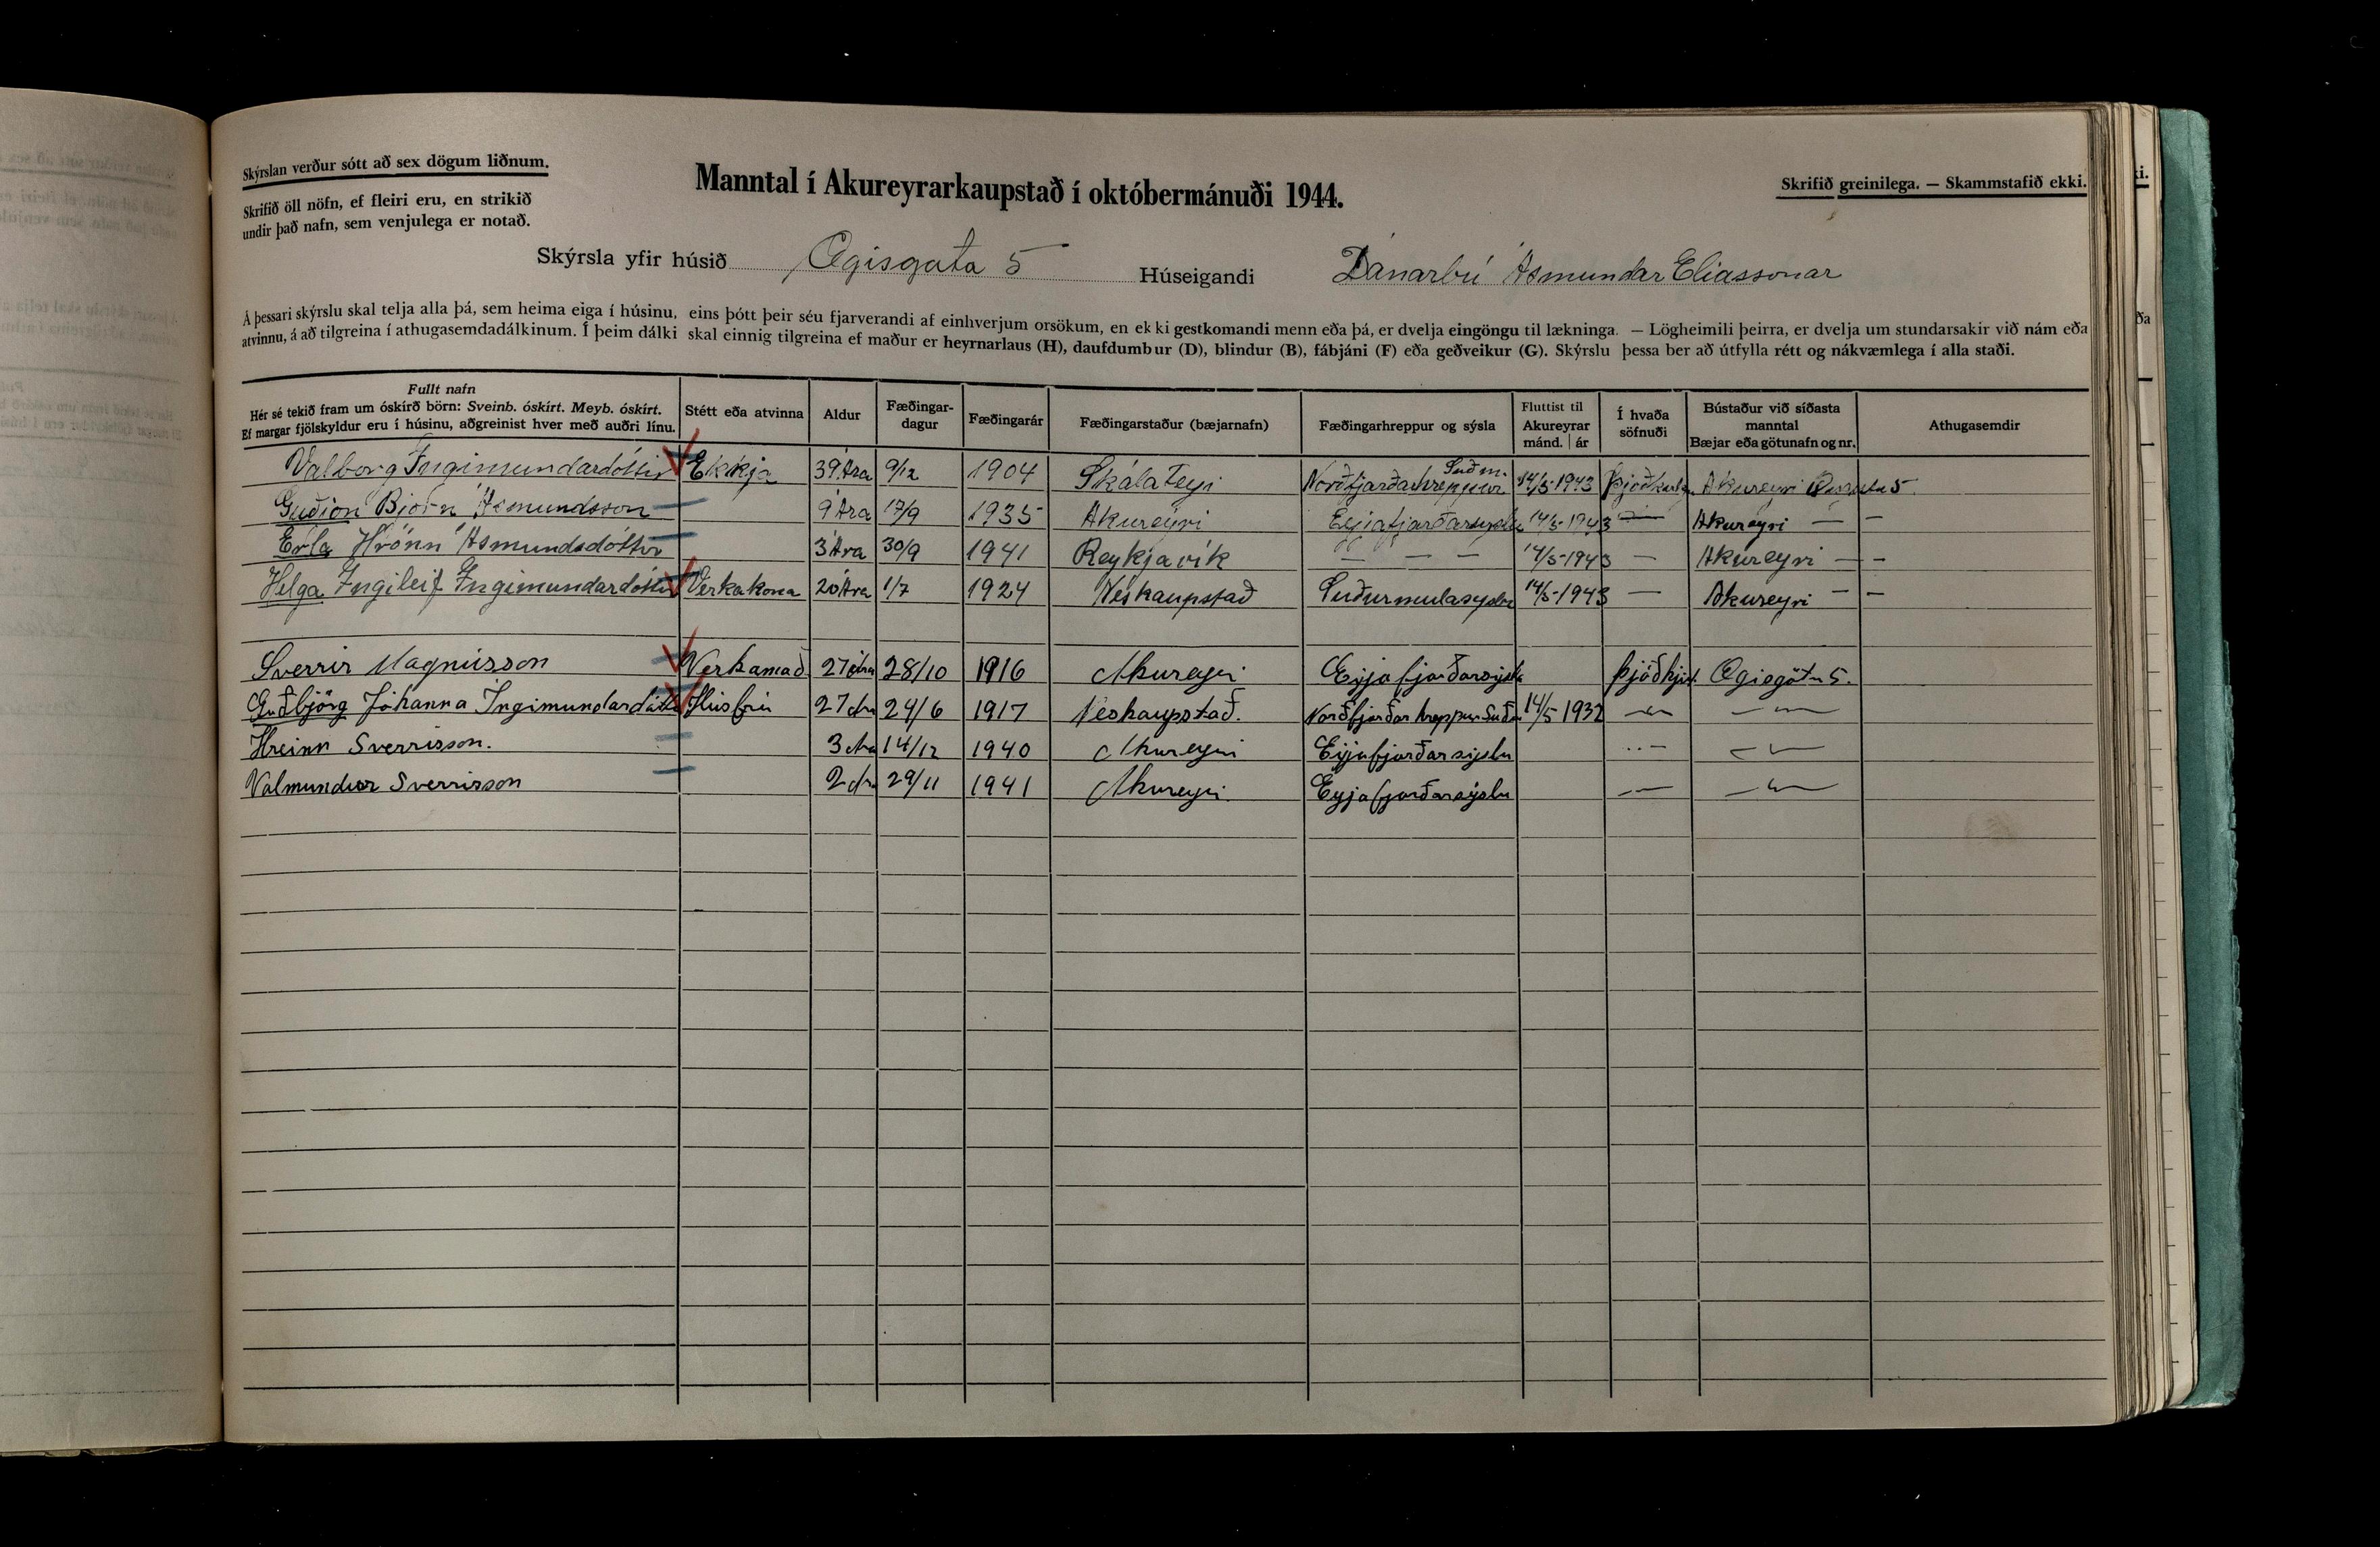 Skýrslan verður sótt að sex dögum liðnum.
Skrifið öll nöfn, ef fleiri eru, en strikið
undir það nafn, sem venjulega er notað.
Manntal í Akureyrarkaupstað í októbermánuði 1944.
Skrifið greinilega. — Skammstafið ekki.
Skýrsla yfir húsið Ægisgata 5 Húseigandi Dánarbú Ásmundar Elíassonar
Á þessari skýrslu skal telja alla þá, sem heima eiga í húsinu, eins þótt þeir séu fjarverandi af einhverjum orsökum, en ekki gestkomandi menn eða þá, er dvelja eingöngu til lækninga. — Lögheimili þeirra, er dvelja um stundarsakir við nám eða
atvinnu, á að tilgreina í athugasemdadálkinum. Í þeim dálki skal einnig tilgreina ef maður er heyrnarlaus (H), daufdumbur (D), blindur (B), fábjáni (F) eða geðveikur (G). Skýrslu þessa ber að útfylla rétt og nákvæmlega í alla staði.
Fullt nafn
Hér sé tekið fram um óskírð börn: Sveinb. óskírt. Meyb. óskírt.
Ef margar fjölskyldur eru í húsinu, aðgreinist hver með auðri línu.
Stétt eða atvinna
Aldur
Fæðingar-
dagur
Fæðingarár
Fæðingarstaður (bæjarnafn)
Fæðingarhreppur og sýsla
Fluttist til
Akureyrar
mánd. | ár
Í hvaða
söfnuði
Bústaður við síðasta
manntal
Bæjar eða götunafn og nr.
Athugasemdir
Valborg Ingimundardóttir Ekkja 39 Ára 9/12 1904 Skálateyi Norðfjarðarhreppur Suðm. 14/5-1943 Akureyri 5
Guðjón Björn Ásmundsson 9 Ára 17/9 1935 Akureyri Eyjafjarðarsyslu 14/5-1943 — Akureyri — —
Erla Hrönn Ásmundsdóttir 3 Ára 30/9 1941 Reykjavík — — — 14/5-1943 — Akureyri — —
Helga Ingileif Ingimundardóttir Verkakona 20 Ára 1/7 1924 Neskaupstað Suðurmulasyslu 14/5-1943 — Akureyri — —
Sverrir Magnússon Verkamað 27 ára 28/10 1916 Akureyri Eyjafjarðarsýslu Þjóðkj. Ægisgötu 5.
Guðbjörg Jóhanna Ingimundardóttir Húsfrú 27 ára 24/6 1917 Neskaupstað. Norðfjarðarhreppur Suðu 14/5 1932 — —
Hreinn Sverrisson. 3 ára 14/12 1940 Akureyri Eyjafjarðarsýslu — —
Valmundur Sverrisson 2 ára 29/11 1941 Akureyri. Eyjafjarðarsýslu — —